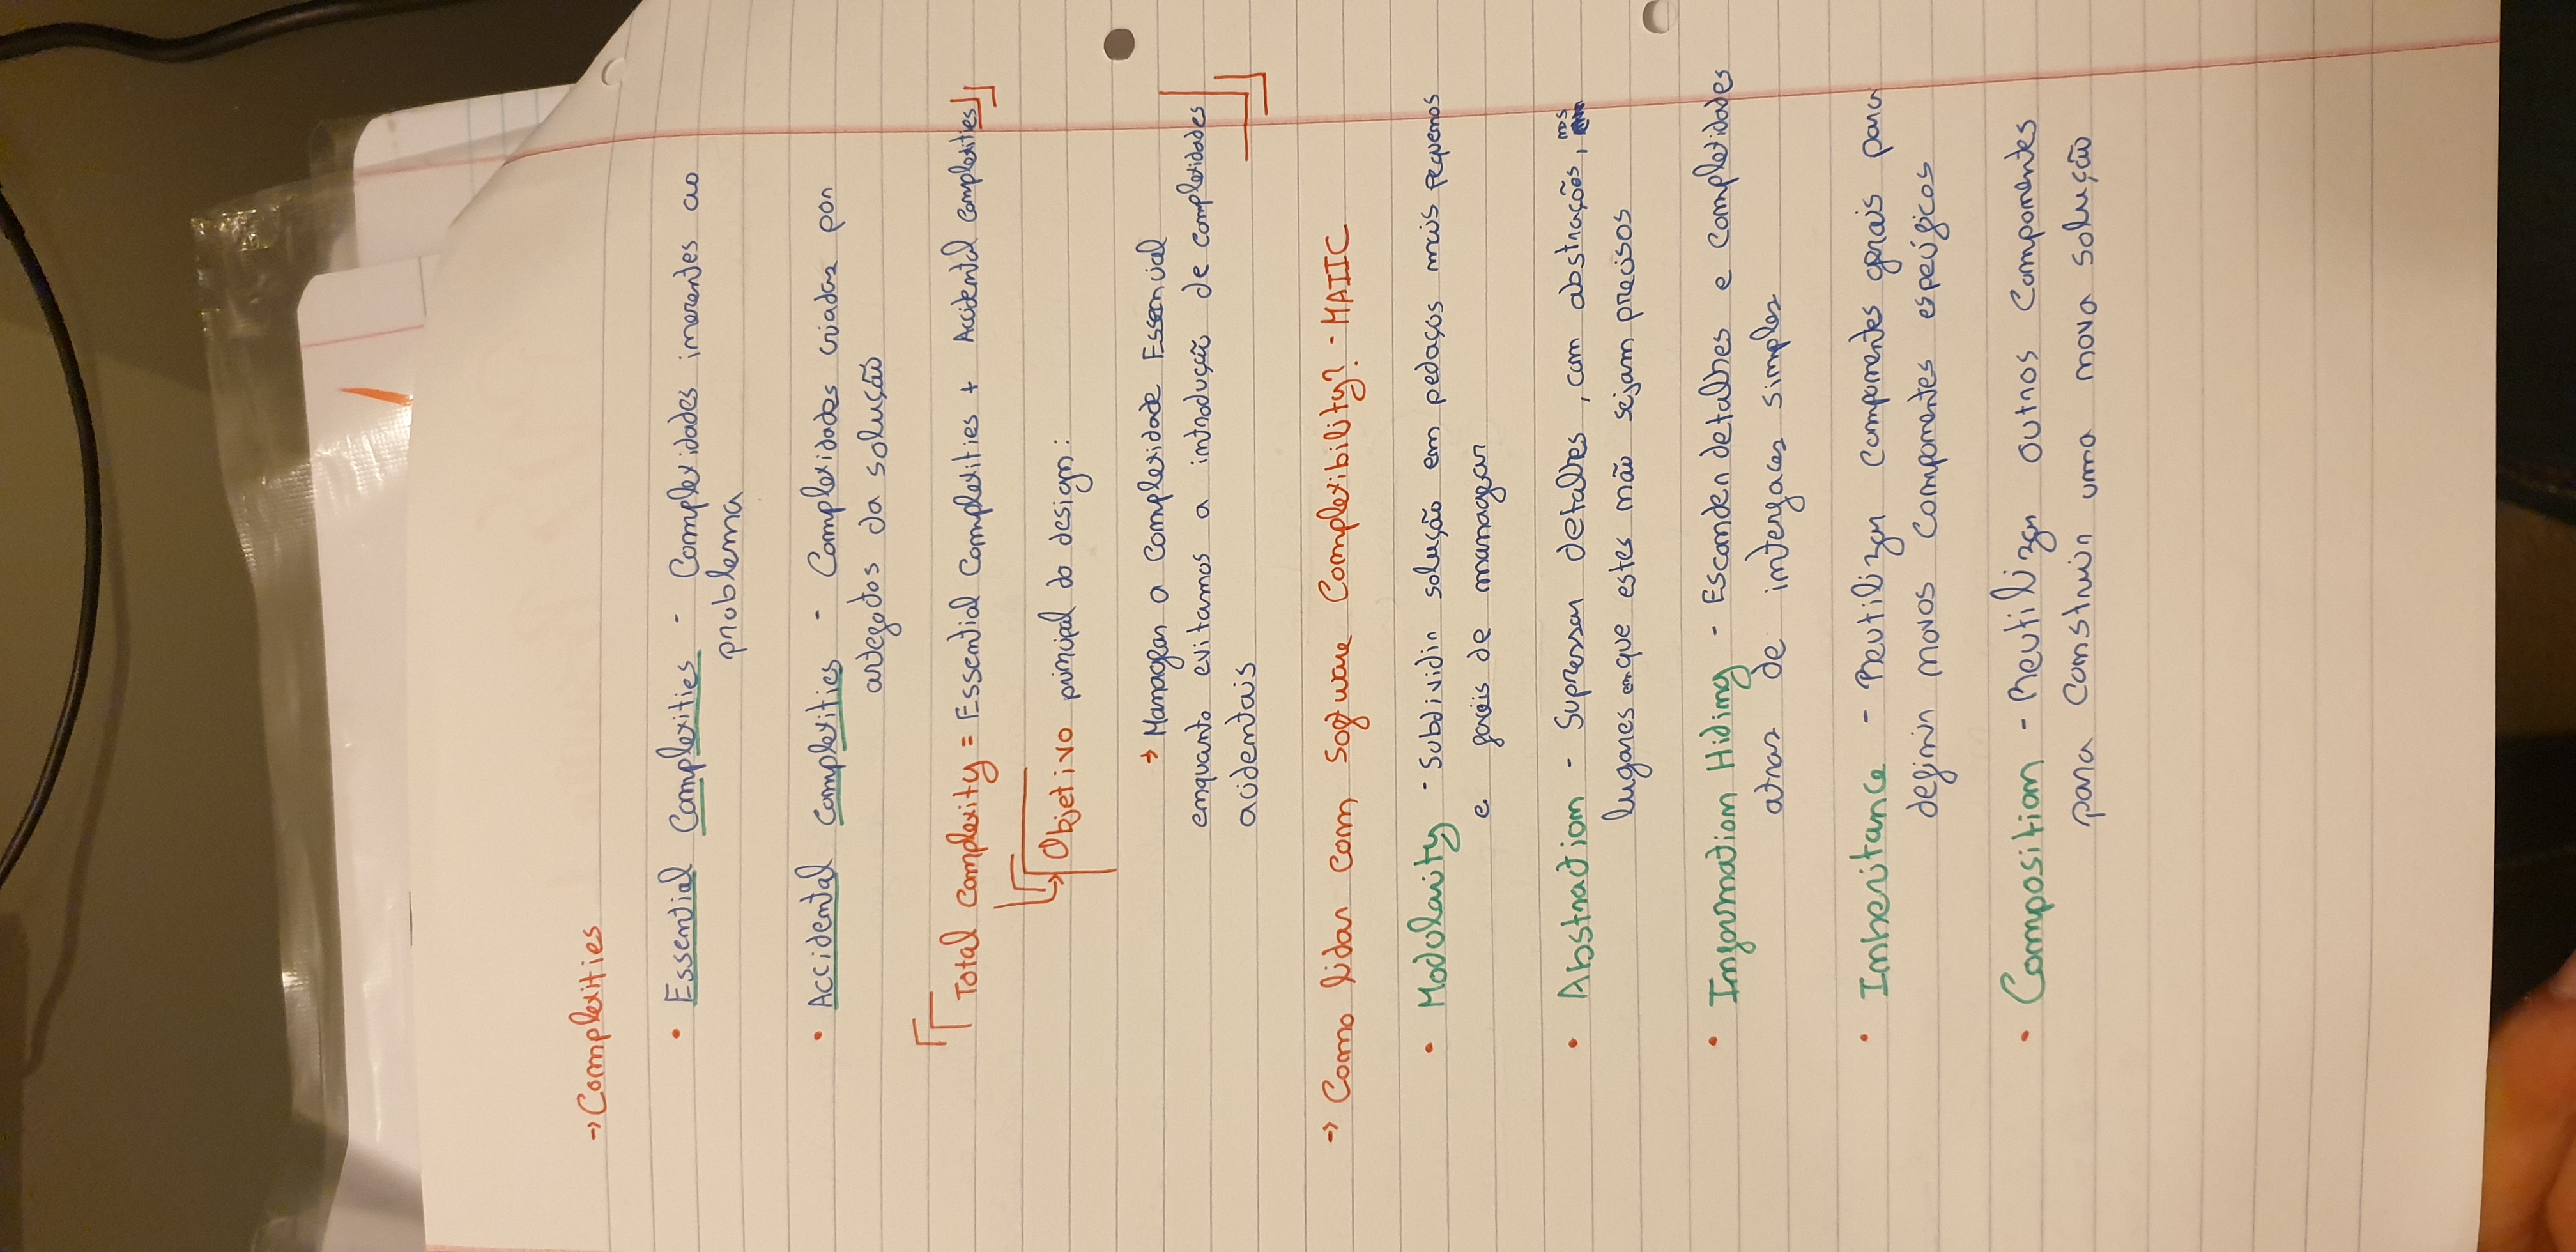 → Complexities
• Essential Complexities - Complexidades inerentes ao
problema
• Accidental Complexities - Complexidades criadas por
artefatos da solução
Total Complexity = Essential Complexities + Accidental Complexities
Objetivo principal do design:
→ Managear a Complexidade Essencial
enquanto evitamos a introdução de complexidades
acidentais
→ Como lidar com Software Complexibility? - MAIIC
• Modularity - Subdividir solução em pedaços mais pequenos
e fáceis de managear
• Abstraction - Supressar detalhes, com abstrações, nos
lugares em que estes não sejam precisos
• Information Hiding - Esconder detalhes e complexidades
atras de interfaces simples
• Inheritance - Reutilizar componentes gerais para
definir novos componentes específicos
• Composition - Reutilizar outros componentes
para construir uma nova solução